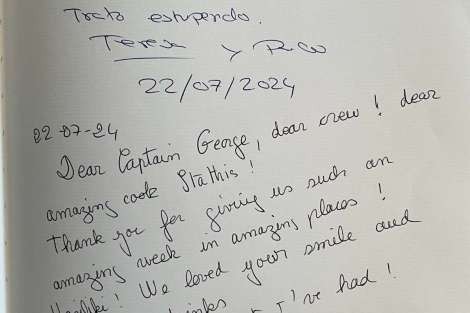 Trato estupendo.
Teresa y
22/07/2024
22-07-24
Dear Captain George, dear crew! dear
amazing cook Stathis!
Thank you for giving us such an
amazing week in amazing places!
We loved your smile and
I've had!